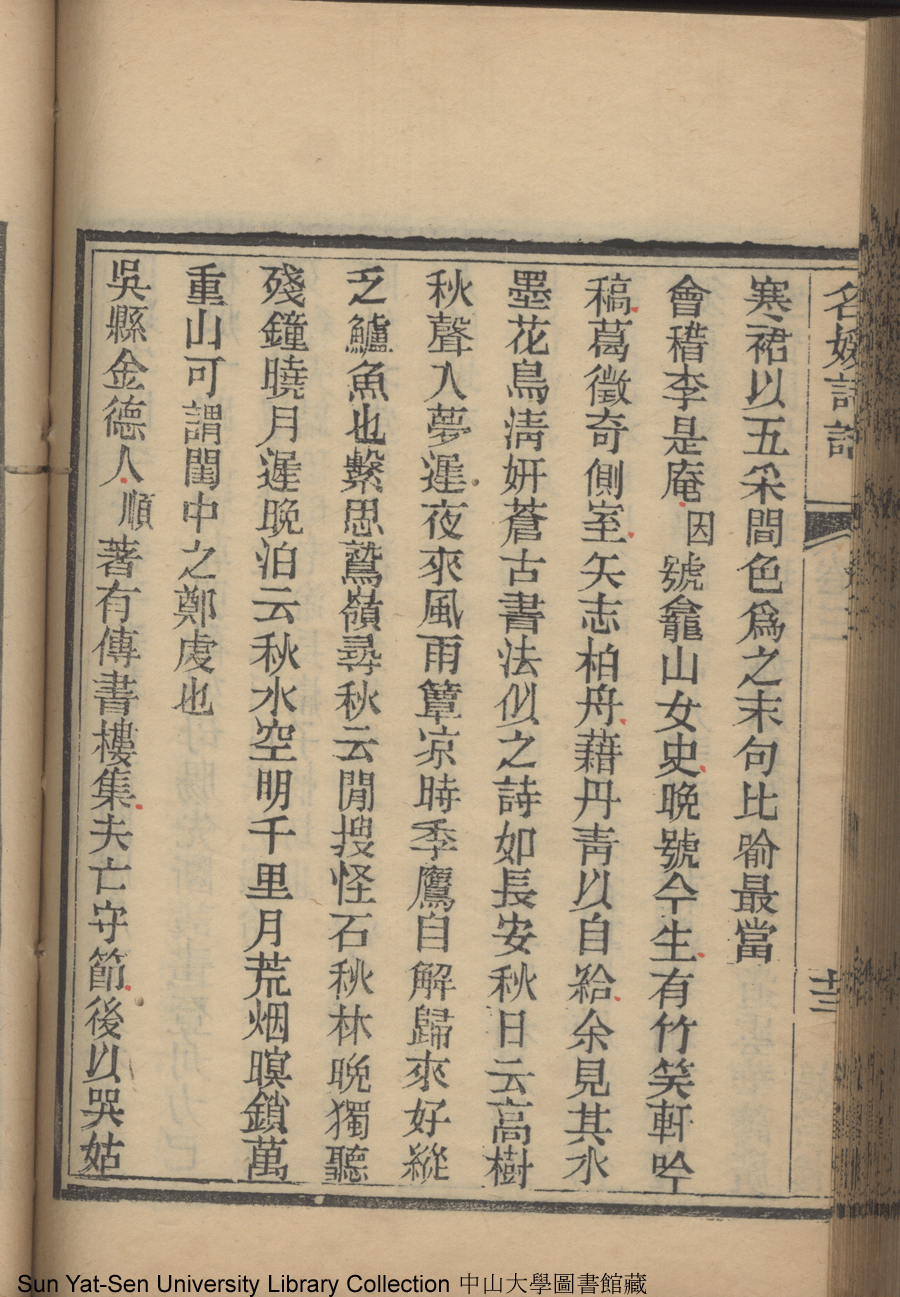 名媛詩話
寒裙以五采間色爲之末句比喻最當
會稽李是庵因號龕山女史晚號今生有竹笑軒吟
稿葛徵奇側室矢志柏舟藉丹靑以自給余見其水
墨花鳥淸妍蒼古書法似之詩如長安秋日云高樹
秋聲入夢遲夜來風雨簟凉時季鷹自解歸來好縱
乏鱸魚也繫思鷲嶺尋秋云閒搜怪石秋林晩獨聽
殘鐘曉月遲晚泊云秋水空明千里月荒烟暝鎖萬
重山可謂閨中之鄭虔也
吳縣金德人順著有傳書樓集夫亡守節後以哭姑
Sun Yat-Sen University Library Collection 中山大學圖書館藏